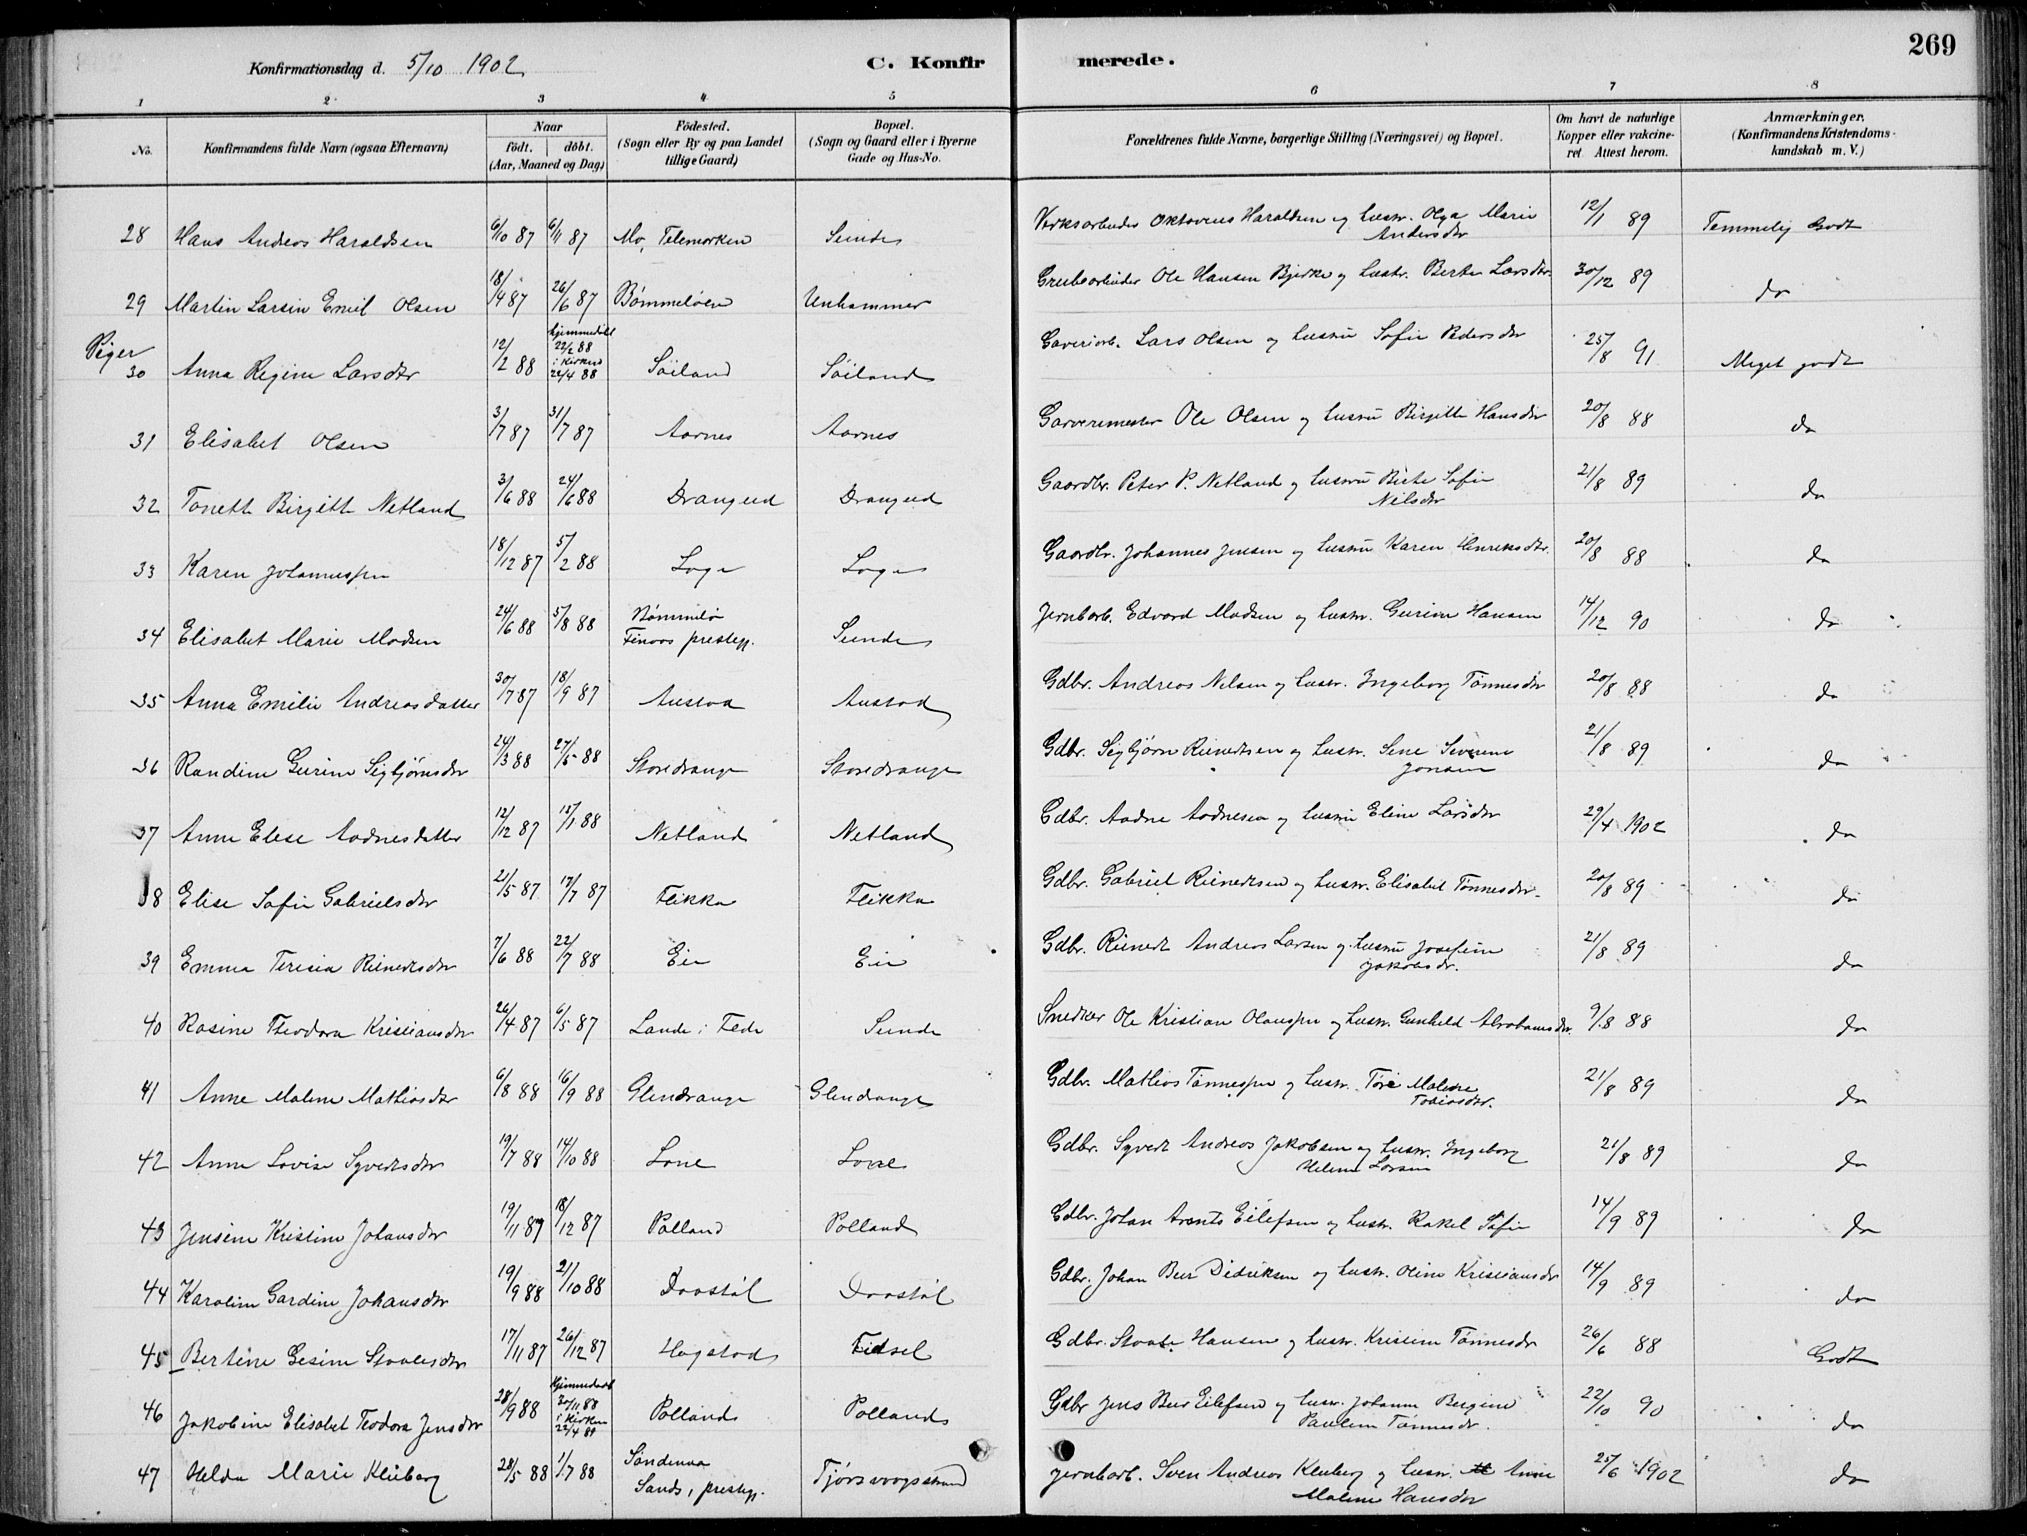 269
Konfirmationsdag d. 5/10 1902
C. Konfirmerede.
1 2 3 4 5 6 7 8
No. Konfirmandens fulde Navn (ogsaa Efternavn) Naar født. døbt. (Aar, Maaned og Dag) Födested. (Sogn eller By og paa Landet tillige Gaard) Bopæl. (Sogn og Gaard eller i Byerne Gade og Hus-No. Forældrenes fulde Navne, borgerlige Stilling (Næringsvei) og Bopæl. Om havt de naturlige Kopper eller vakcineret. Attest herom. Anmærkninger. (Konfirmandens Kristendomskundskab m. V.)
28 Hans Andreas Haraldsen 6/10 87 6/11 87 Mo, Telemarken Sunde Verksarbeider Oktavius Haraldsen og hustr. Olga Marie Andersdtr 12/1 89 Temmelig Godt
29 Martin Larsin Emil Olsen 18/4 87 26/6 87 Bømmeløen Unhammer Grubearbeider Ole Hansen Bjerke og hustr. Berte Larsdtr. 30/12 89 do
Piger
30 Anna Regine Larsdtr 12/2 88 hjemmedøbt 22/2 88 i Kirken 22/4 88 Söiland Söiland Garveriarb. Lars Olsen og hustru Sofie Pedersdtr 25/8 91 Meget godt
31 Elisabet Olsen 3/7 87 31/7 87 Aarnes Aarnes Garvermester Ole Olsen og hustru Birgitte Hansdtr 20/8 88 do
32 Tonette Birgitte Netland 3/6 88 24/6 88 Drangeid Drangeid Gaardbr. Peter P. Netland og hustru Birte Sofie Nilsdtr 21/8 89 do
33 Karen Johannessen 18/12 87 5/2 88 Loge Loge Gaardbr. Johannes Jensen og hustru Karen Henriksdtr. 20/8 88 do
34 Elisabet Marie Madsen 24/6 88 5/8 88 Bömmelö Finaas prestegj. Sunde Jernbarb. Edvard Madsen og hustr. Gurine Hansen 14/12 90 do
35 Anna Emilie Andreasdatter 30/7 87 18/9 87 Austad Austad Gdbr. Andreas Nilsen og hustr. Ingeborg Tönnesdtr 20/8 88 do
36 Randine Gurine Sigbjörnsdtr 24/3 88 27/5 88 Storedrange Storedrange Gdbr. Sigbjörn Reinertsen og hustr. Sene Severine Jonsen 21/8 89 do
37 Anne Elese Aadnesdatter 12/12 87 15/1 88 Netland Netland Gdbr. Aadne Aadnesen og hustru Eline Larsdtr 29/4 1902 do
38 Elise Sofie Gabrielsdtr 21/5 87 17/7 87 Flikka Flikka Gdbr. Gabriel Reinertsen og hustr. Elisabet Tönnesdtr. 20/8 89 do
39 Emma Teresia Reinertsdtr 7/6 88 22/7 88 Eie Eie Gdbr. Reinert Andreas Larsen og hustru Josefine Jakobsdtr. 21/8 89 do
40 Rasine Theodora Kristiansdtr 26/4 87 6/5 87 Lande i Fede Sunde Snedker Ole Kristian Olaussen og hustr. Gunhild Abrahamsdtr. 9/8 88 do
41 Anne Malene Mathiasdtr 6/8 88 16/9 88 Glendrange Glendrange Gdbr. Mathias Tönnessen og hustr. Tore Malene Tobiasdtr. 21/8 89 do
42 Anne Lovise Syvertsdtr 19/7 88 14/10 88 Lone Lone Gdbr. Syvert Andreas Jakobsen og hustr. Ingeborg Helene Larsen 21/8 89 do
43 Jensine Kristine Johansdtr 19/11 87 18/12 87 Polland Polland Gdbr. Johan Arents Eilefsen og hustr. Rakel Sofie 14/9 89 do
44 Karoline Gardine Johansdtr 19/9 88 21/10 88 Daastöl Daastöl Gdbr. Johan Beer Didriksen og hustr. Oline Kristiansdtr 14/9 89 do
45 Bertine Gesine Staalesdtr 17/11 87 26/12 87 Högstad Fidsel Gdbr. Staale Hansen og hustr. Kristine Tönnesdtr 26/6 88 Godt
46 Jakobine Elisabet Teodora Jensdtr 28/9 88 hjemmedøbt 30/11 88 i Kirken 22/4 89 Polland Polland Gdbr Jens Beer Eilefsen og hustr. Johanne Bergine Pauline Tönnesdtr. 22/10 90 do
47 Helda Marie Kleiberg 28/5 88 1/7 88 Söndenaa Sands, prestegj. Tjörsvaagstrand Jernbarb. Sven Andreas Kleiberg og hustr. Anne Malene Hansdtr 25/6 1902 do